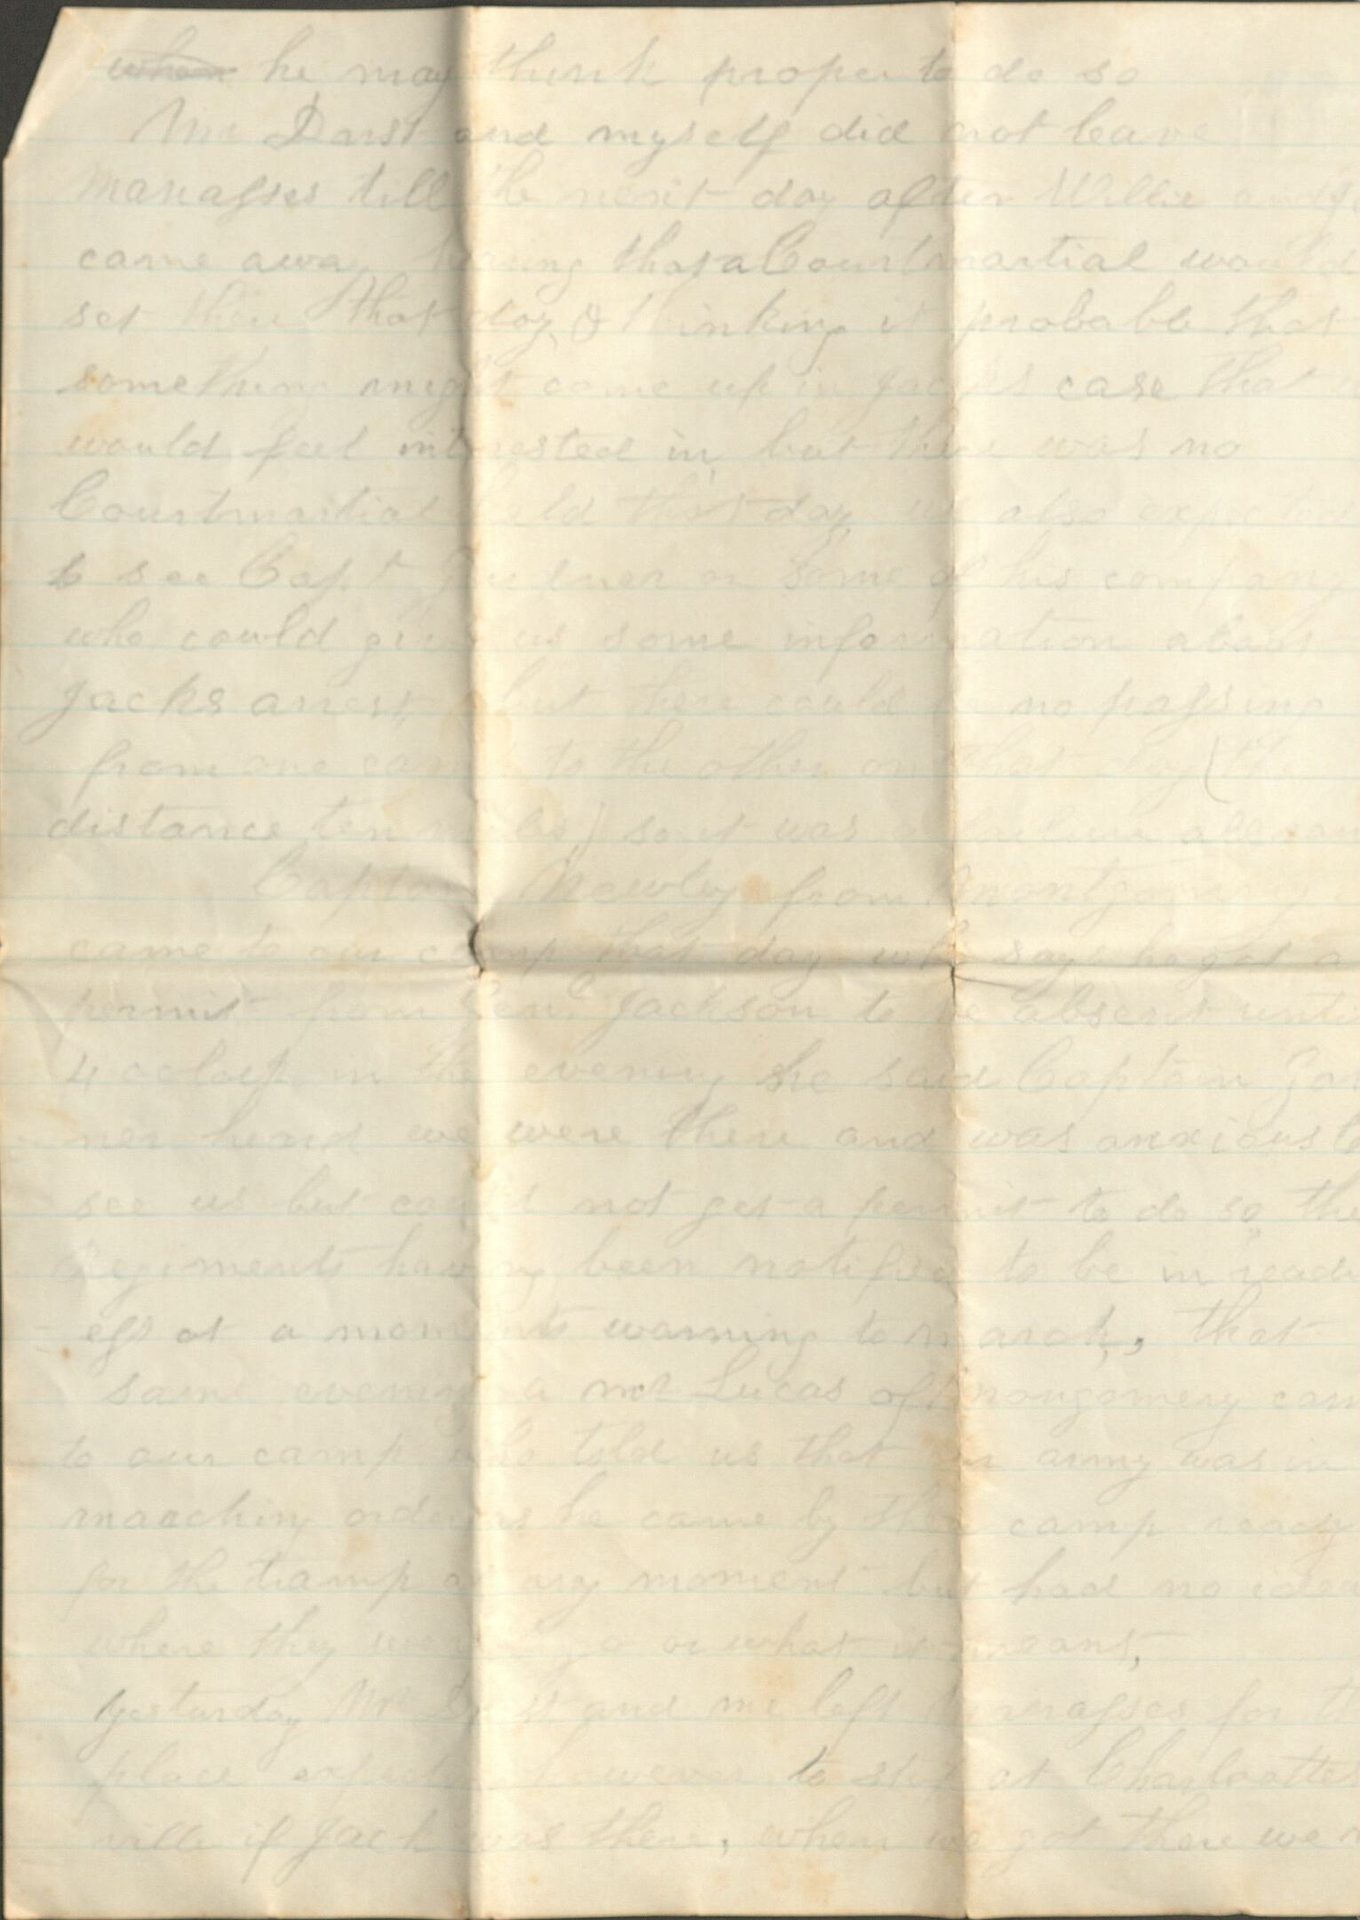 when he may think proper to do so
Mr Darst and myself did not leave
Manasses till the next day after Willie
came away hearing that a Courtmartial would
set there that day & thinking it probable that
something might come up in Jacks case that
would feel interested in, but there was no
Courtmartial held that day we also expected
to see Capt or some of his company
who could give us some information about
Jacks arrest, but there could be no passing
from one camp to the other on that day (the
distance ten miles) so it was a failure all
Captain Newley from Montgomery
came to our camp that day who says he got a
permit from Genl Jackson to be absent until
4 oclock in the evening he said Captain Gar
ner heard we were there and was anxious to
see us but could not get a permit to do so the
Regiments having been notified to be in readi
ess at a moments warning to march, that
same evening a mr Lucas of Mongomery came
to our camp who told us that army was in
marching orders he came by their camp ready
for the tramp at any moment but had no idea
where they were to go or what it meant,
yesturday Mr Darst and me left Manasses for
place expecting however to stop at Charloottes
ville if Jack was there, when we got there we